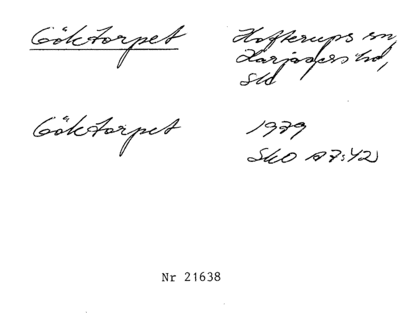 Göktorpet
Hofterups sn,
Harjagers hd,
Sk
Göktorpet
1979
SkO A7:42
Nr 21638